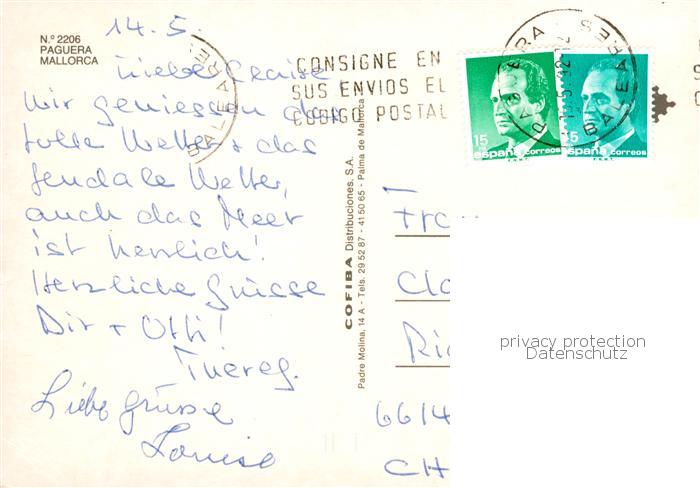 N.º 2206
PAGUERA
MALLORCA
14.5.
Wir geniessen das
tolle Wetter + das
feudale Wetter,
auch das Meer
ist herrlich!
Herzliche Grüsse
Dir + Otti!
Liebe Grüsse
Louise
CONSIGNE EN
SUS ENVIOS EL
CODIGO POSTAL
BALEARES
COFIBA Distribuciones, S.A.
Padre Molina, 14 A - Tels. 29 52 87 - 41 50 65 - Palma de Mallorca
15
españa correos
españa correos
BALEARES
Fr
Cla
Ri
6614
CH
privacy protection
Datenschutz